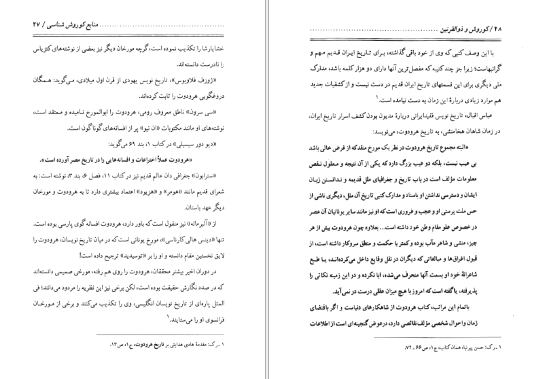 ۴۸ / کوروش و ذوالقرنین
با این وصف کتبی که وی از خود باقی گذاشته، برای تاریخ ایران قدیم مهم و
گرانبهاست؛ زیرا جز چند کتیبه که مفصل‌ترین آنها دارای دو هزار کلمه باشد، مدارک
ملی دیگری برای این قسمتهای تاریخ ایران قدیم در دست نیست و از کشفیات جدید
هم موارد زیادی دربارهٔ این زمان به دست نیامده است.۱
عباس اقبال، تاریخ نویس فقید ایرانی دربارهٔ مدیون بودن کشف اسرار تاریخ ایران،
در زمان شاهان هخامنشی، به تاریخ هرودوت، می‌نویسد:
«البته مجموع تاریخ هرودوت در نظر یک مورخ منتقد که از غرض خالی باشد
بی عیب نیست، بلکه دو عیب بزرگ دارد که یکی از آن نتیجه و معلول نقص
معلومات مؤلف است در باب تاریخ و جغرافیای ملل قدیمه و ندانستن زبان
ایشان و دسترسی نداشتن او باسناد و مدارک کتبی تاریخ آن ملل، دیگری ناشی از
حس ملت پرستی او و عجب و غروری است که او نیز مانند سایر یونانیان آن عصر
در خصوص علو مقام وطن خود داشته است... بعلاوه چون هرودوت بیش از هر
چیز، منشی و شاعر مآب بوده و کمتر با حکمت و منطق سروکار داشته است، از
قبول اغراق‌ها و مبالغاتی که دیگران در نقل وقایع داخل می‌کرده‌اند، با طبع
شاعرانهٔ خود او بسمت آنها منحرف می‌شده، ابا نکرده و در این زمینه نکاتی را
پذیرفته، یا گفته است که امروز با هیچ میزان عقلی درست در نمی‌آید.
باتمام این مراتب، کتاب هرودوت از شاهکارهای دنیاست و اگر باقتضای
زمان و احوال شخصی مؤلف نقائصی دارد، در عوض گنجینه‌ای است از اطلاعات
۱ ـ رک: حسن پیرنیا، همان کتاب، ج۱، ص۶۶ ـ ۷۲.
منابع کوروش شناسی / ۴۷
خشایارشا را تکذیب نموده است، گرچه مورخان دیگر نیز بعضی از نوشته‌های کتزیاس
را نادرست دانسته‌اند.
«ژوزف فلاویوس»، تاریخ نویس یهودی از قرن اول میلادی، می‌گوید: همگان
دروغگویی هرودوت را ثابت کرده‌اند.
«سی سرون» ناطق معروف رومی، هرودوت را ابوالمورخ نامیده و معتقد است،
نوشته‌های او مانند مکتوبات «ان نیو» پر از افسانه‌های گوناگون است.
«دیو دور سیسیلی» در کتاب ۱، بند ۶۹ می‌گوید:
«هرودوت عملاً اختراعات و افسانه‌هایی را در تاریخ مصر آورده است.»
«سترابون» جغرافی دان عالم قدیم نیز در کتاب ۱۱، فصل ۶، بند ۳، نوشته است: به
شعرای قدیم مانند «هومر» و «هزیود» اعتماد بیشتری دارد تا به هرودوت و مورخان
دیگر عهد باستان.
از «آلبرماله» نیز منقول است که باور دارد، هرودوت افسانه گوی پارسی بوده است.
تنها «دیس هالی کارناسی»، مورخ یونانی است که در میان تاریخ نویسان، هرودوت را
لایق نخستین مقام دانسته و او را بر «توسیدید» ترجیح داده است!
در دوران اخیر بیشتر محققان، هرودوت را روی هم رفته، مورخی صمیمی دانسته‌اند
که در صدد نگارش حقیقت بوده است، لکن برخی نیز این نظریه را مردود می‌دانند؛ فی
المثل پاره‌ای از تاریخ نویسان انگلیسی، وی را تکذیب می‌کنند و برخی از مورخان
فرانسوی او را می‌ستایند.۱
۱ ـ رک: مقدمهٔ هادی هدایتی بر تاریخ هرودوت، ج۱، ص۱۳.